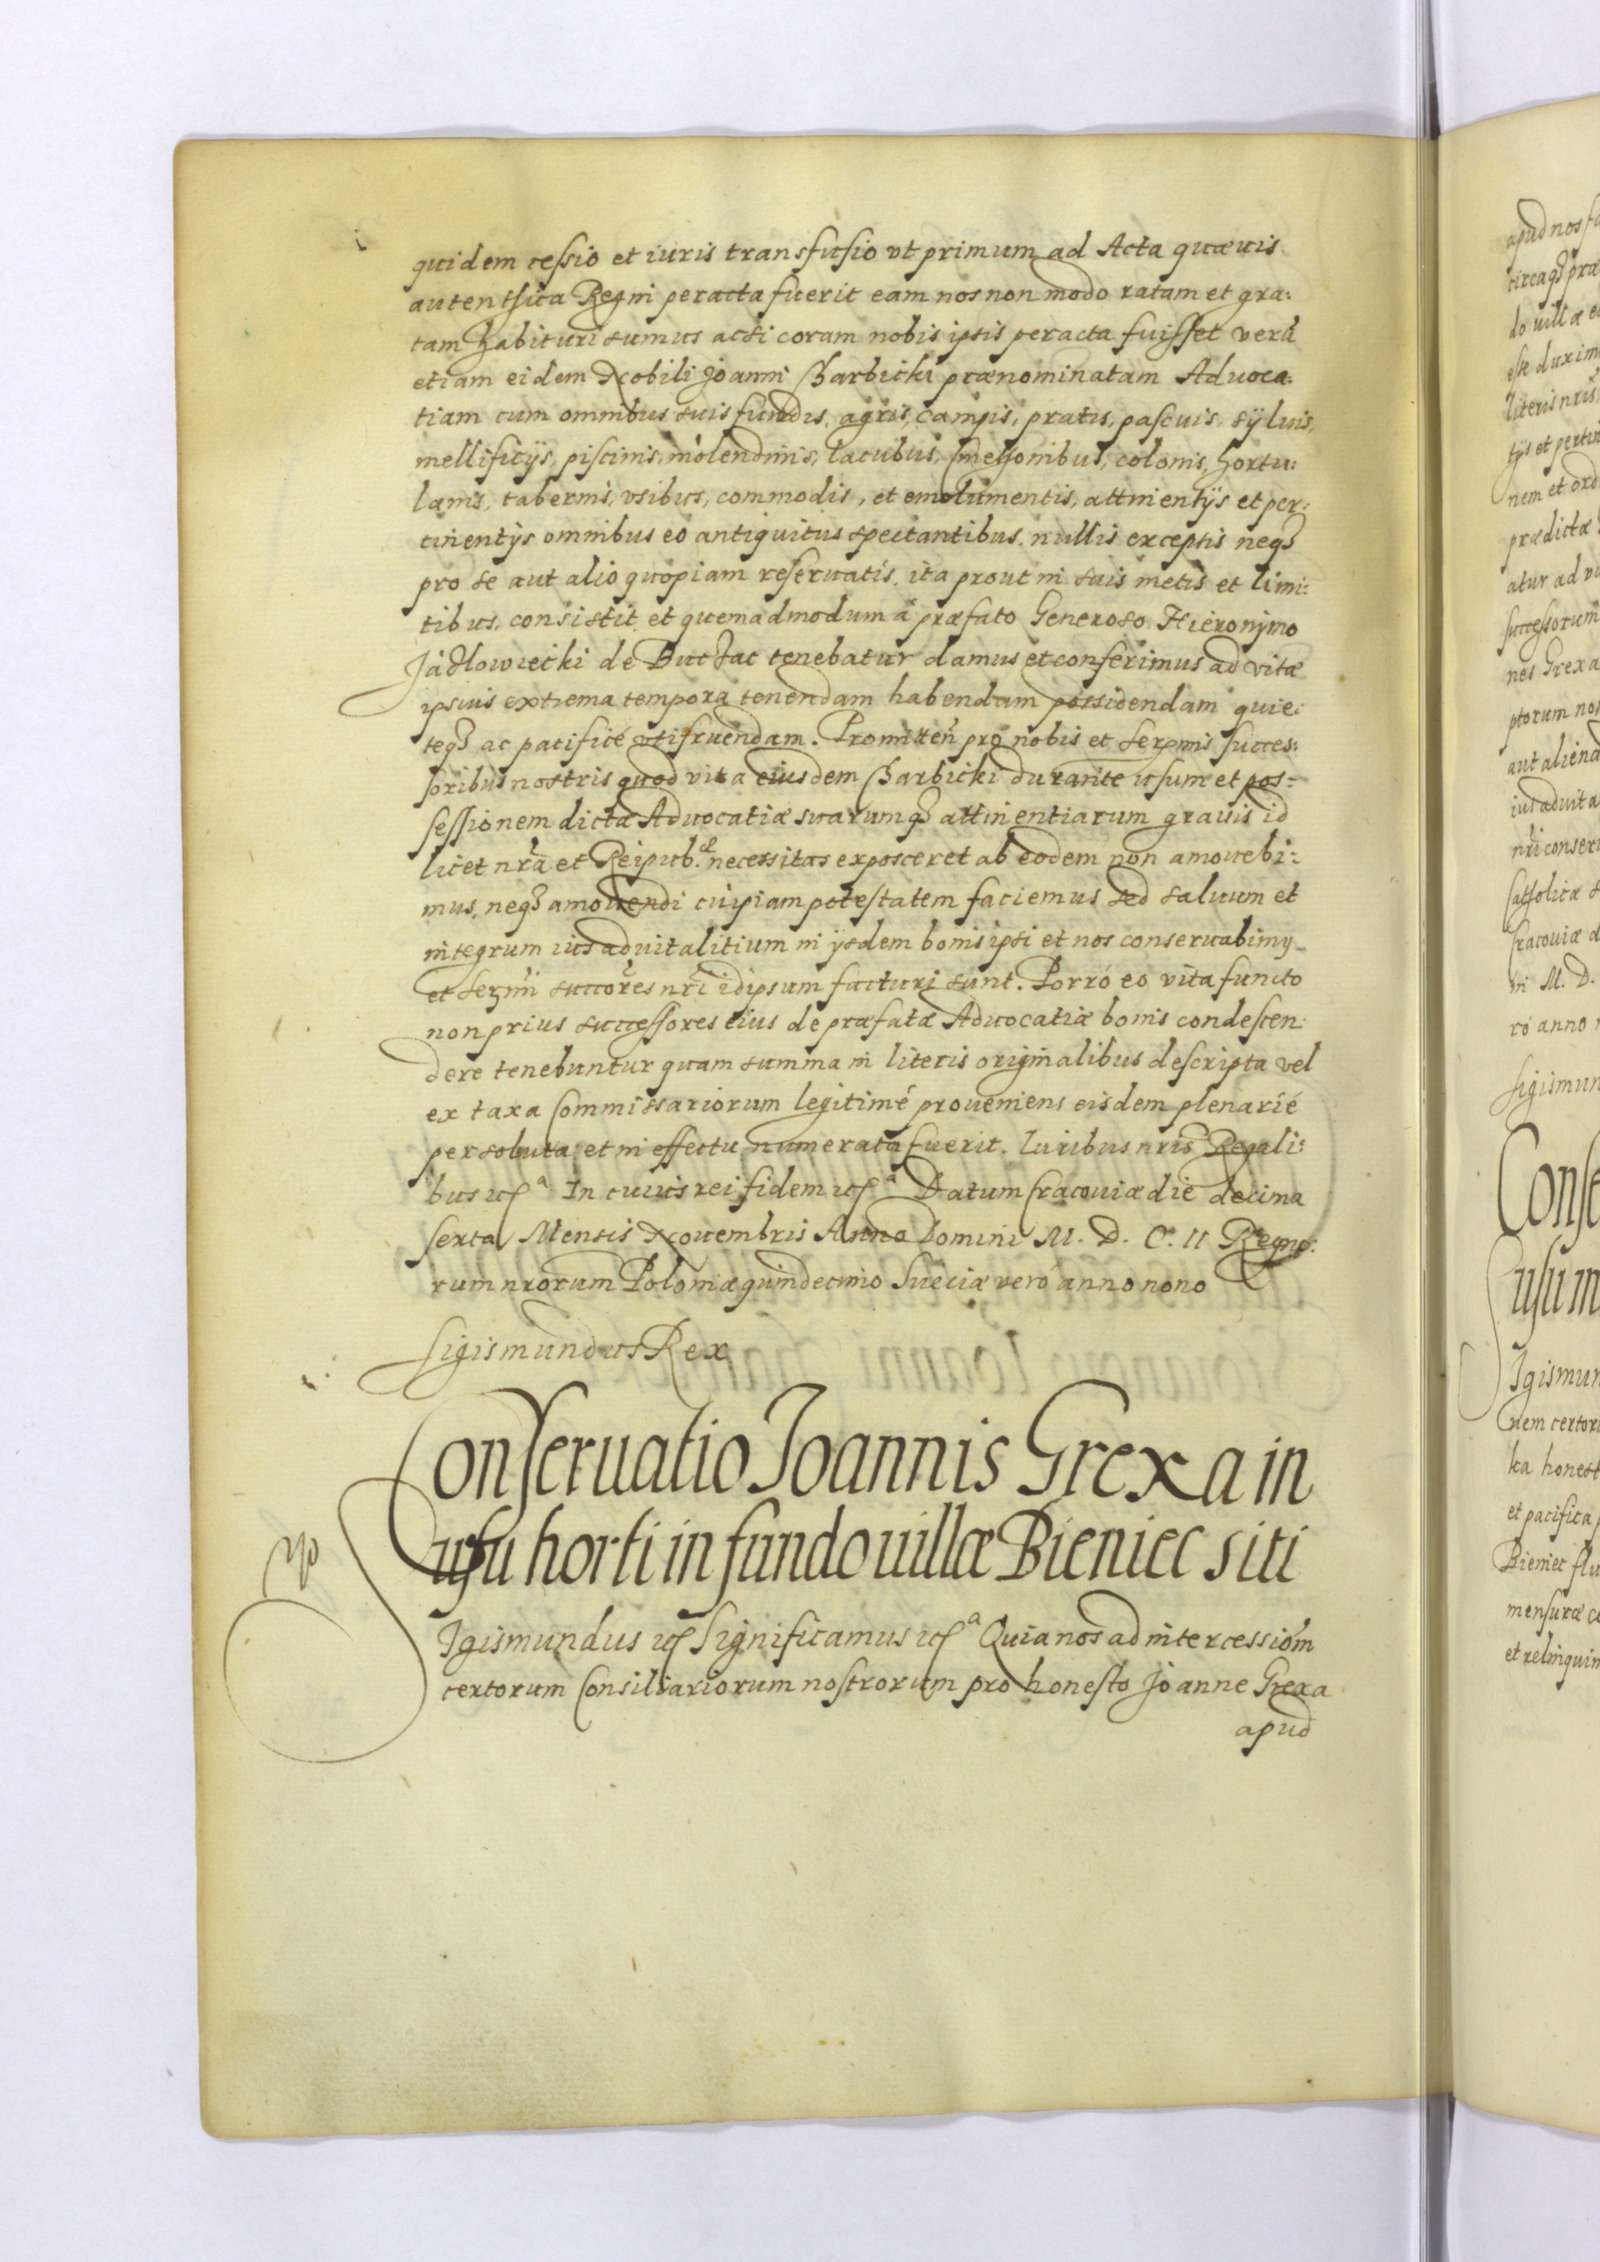 quidem cessio et iuris transfusio vt primum ad Acta quæuis
autenthica Regni peracta fuerit eam nos non modo ratam et gra:
tam habituri sumus acsi coram nobis ipsis peracta fuisset verū
etiam eidem Nobili Joanni Charbicki prænominatam Aduoca:
tiam cum omnibus suis fundis, agris, campis, pratis, pascuis, syluis,
mellificijs, piscinis, molendinis, lacubus, Cmethonibus, colonis, hortu:
lanis, tabernis, vsibus, commodis, et emolumentis, attinentijs et per:
tinentijs omnibus eo antiquitus spectantibus, nullis exceptis neqȝ
pro se aut alio quopiam reseruatis, ita prout in suis metis et limi:
tibus, consistit et quemadmodum à præfato Generoso Hieronymo
Jadlowiecki de tenebatur damus et conferimus ad vitæ
ipsius extrema tempora tenendam habendam possidendam quie:
teqȝ ac pacifice vtifruendam. Promitteñ pro nobis et serenmis succes:
soribus nostris quod vita eiusdem Charbicki durante usum et pos-
sessionem dictæ Aduocatiæ suarumqȝ attinentiarum grauis id
licet nr̃a et Reipub.æ necessitas exposceret ab eodem non amouebi:
mus, neqȝ amouendi cuipiam potestatem faciemus sed saluum et
integrum ius aduitalitium in ijsdem bonis ipsi et nos conseruabimy
et serm̃i succores nr̃i idipsum facturi sunt. Porró eo vita functo
non prius successores eius de præfatæ Aduocatiæ bonis condescen:
dere tenebuntur quam summa in literis originalibus descripta vel
ex taxa Commissariorum legitimé proueniens eisdem plenarié
persoluta et in effectu numerata fuerit. Iuribus nris Regali:
bus etc.a In cuius rei fidem etc.a Datum Cracouiæ die decima
sexta Mensis Nouembris Anno Domini M. D. C. II Regno:
rum nrorum Poloniæ quindecimo Sueciæ vero anno nono
Sigismundus Rex
Conseruatio Joannis Grexa in
usu horti in fundo uillæ Bieniec siti
Sigismundus etc Significamus etc.a Quia nos ad intercessiom̃
certorum Consiliariorum nostrorum pro honesto Joanne Grexa
apud